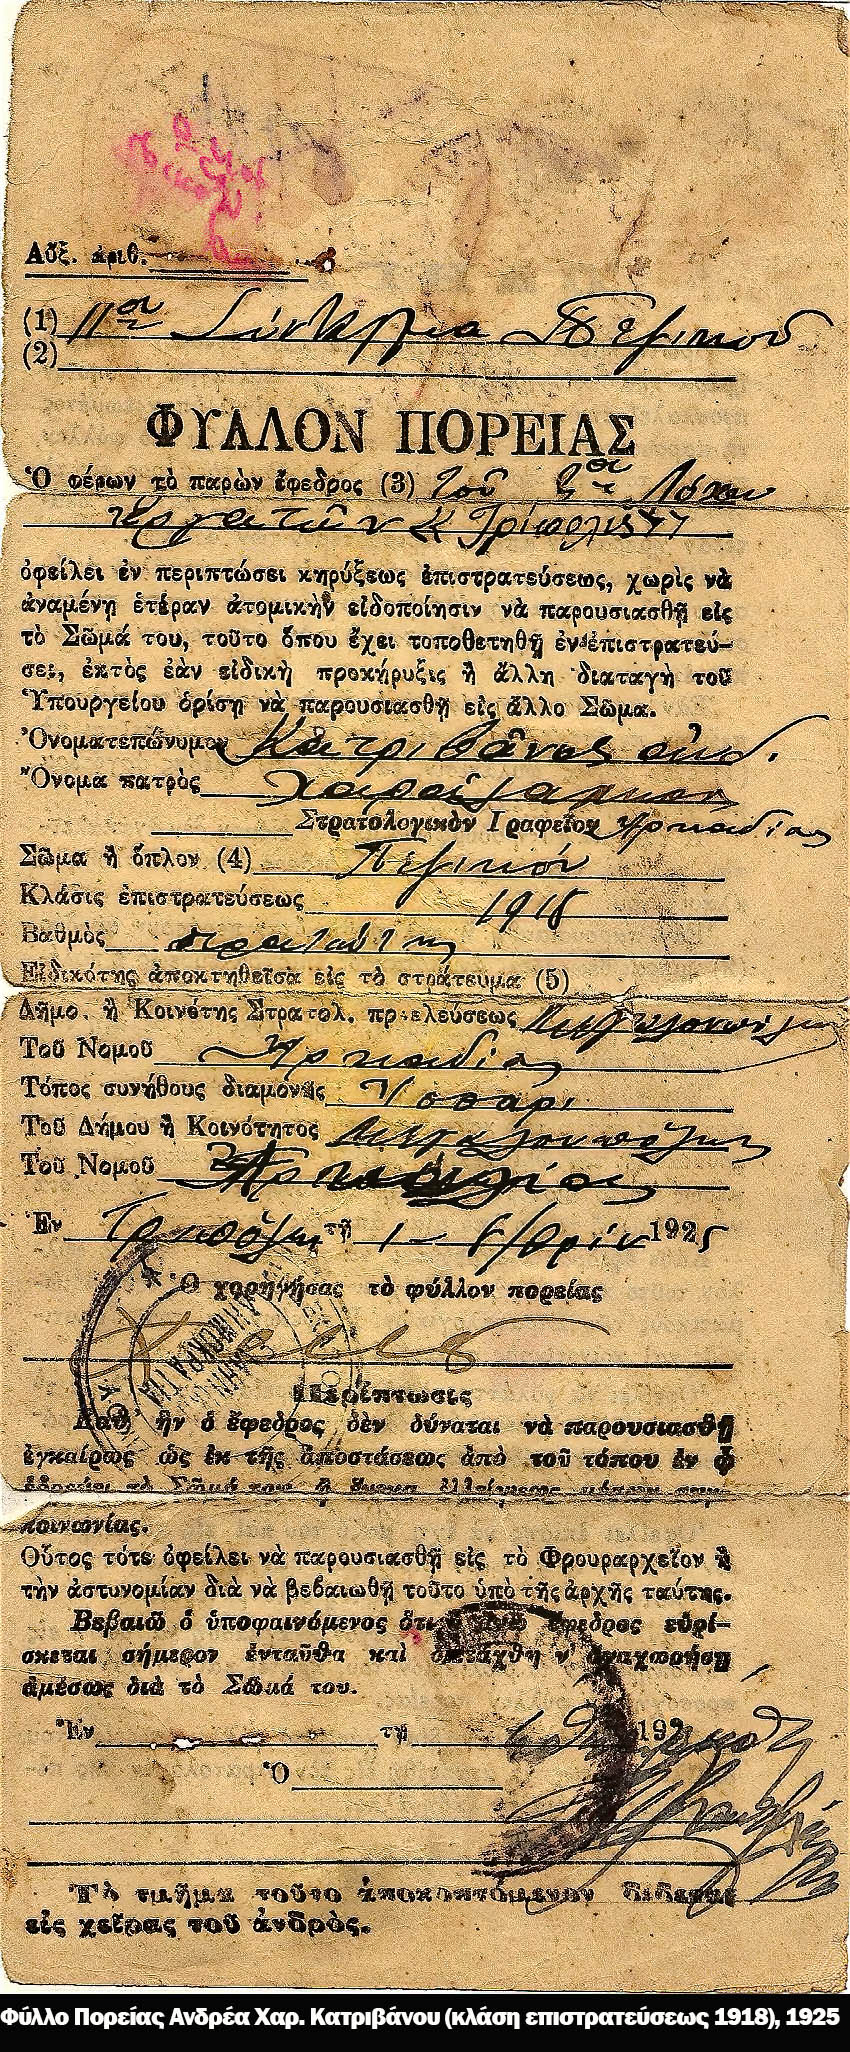 Αὔξ. ἀριθ.
(1) 11ον Σύνταγμα Πεζικοῦ
(2)
ΦΥΛΛΟΝ ΠΟΡΕΙΑΣ
Ὁ φέρων τὸ παρὼν ἔφεδρος (3) τοῦ Λόχου
Ἐργατῶν
ὀφείλει ἐν περιπτώσει κηρύξεως ἐπιστρατεύσεως, χωρὶς νὰ
ἀναμένῃ ἑτέραν ἀτομικὴν εἰδοποίησιν νὰ παρουσιασθῇ εἰς
τὸ Σῶμά του, τοῦτο ὅπου ἔχει τοποθετηθῇ ἐν ἐπιστρατεύ-
σει, ἐκτὸς ἐὰν εἰδικὴ προκήρυξις ἢ ἄλλη διαταγὴ τοῦ
Ὑπουργείου ὁρίσῃ νὰ παρουσιασθῇ εἰς ἄλλο Σῶμα.
Ὀνοματεπώνυμον Κατριβᾶνος Ἀνδ.
Ὄνομα πατρὸς Χαραλάμπους
Στρατολογικὸν Γραφεῖον Ἀρκαδίας
Σῶμα ἢ ὅπλον (4) Πεζικόν
Κλάσις ἐπιστρατεύσεως 1918
Βαθμὸς στρατιώτης
Εἰδικότης ἀποκτηθεῖσα εἰς τὸ στράτευμα (5)
Δῆμο. ἢ Κοινότης Στρατολ. προελεύσεως Μεγαλοπόλεως
Τοῦ Νομοῦ Ἀρκαδίας
Τόπος συνήθους διαμονῆς Ἴσαρι
Τοῦ Δήμου ἢ Κοινότητος Μεγαλοπόλεως
Τοῦ Νομοῦ Ἀρκαδίας
Ἐν Τριπόλει τῇ 1 1925
Ὁ χορηγήσας τὸ φύλλον πορείας
ΔΗΜΟΚΡΑΤΙΑ
Περίπτωσις
Καθ' ἣν ὁ ἔφεδρος δὲν δύναται νὰ παρουσιασθῇ
ἐγκαίρως ὡς ἐκ τῆς ἀποστάσεως ἀπὸ τοῦ τόπου ἐν ᾧ
ἑδρεύει τὸ Σῶμά του, ἢ ἕνεκα ἐλλείψεως μέσων συγ-
κοινωνίας.
Οὗτος τότε ὀφείλει νὰ παρουσιασθῇ εἰς τὸ Φρουραρχεῖον ἢ
τὴν ἀστυνομίαν διὰ νὰ βεβαιωθῇ τοῦτο ὑπὸ τῆς ἀρχῆς ταύτης.
Βεβαιῶ ὁ ὑποφαινόμενος ὅτι ὁ ἄνω ἔφεδρος εὑρί-
σκεται σήμερον ἐνταῦθα καὶ διετάχθη ν' ἀναχωρήσῃ
ἀμέσως διὰ τὸ Σῶμά του.
Ἐν τῇ 192
Ὁ
Τὸ τμῆμα τοῦτο ἀποκοπτόμενον δίδεται
εἰς χεῖρας τοῦ ἀνδρὸς.
Φύλλο Πορείας Ανδρέα Χαρ. Κατριβάνου (κλάση επιστρατεύσεως 1918), 1925